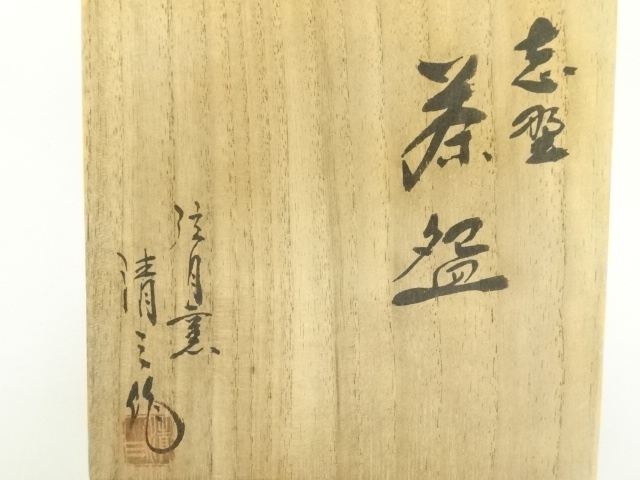 志野
茶盌
弦月窯
清之作